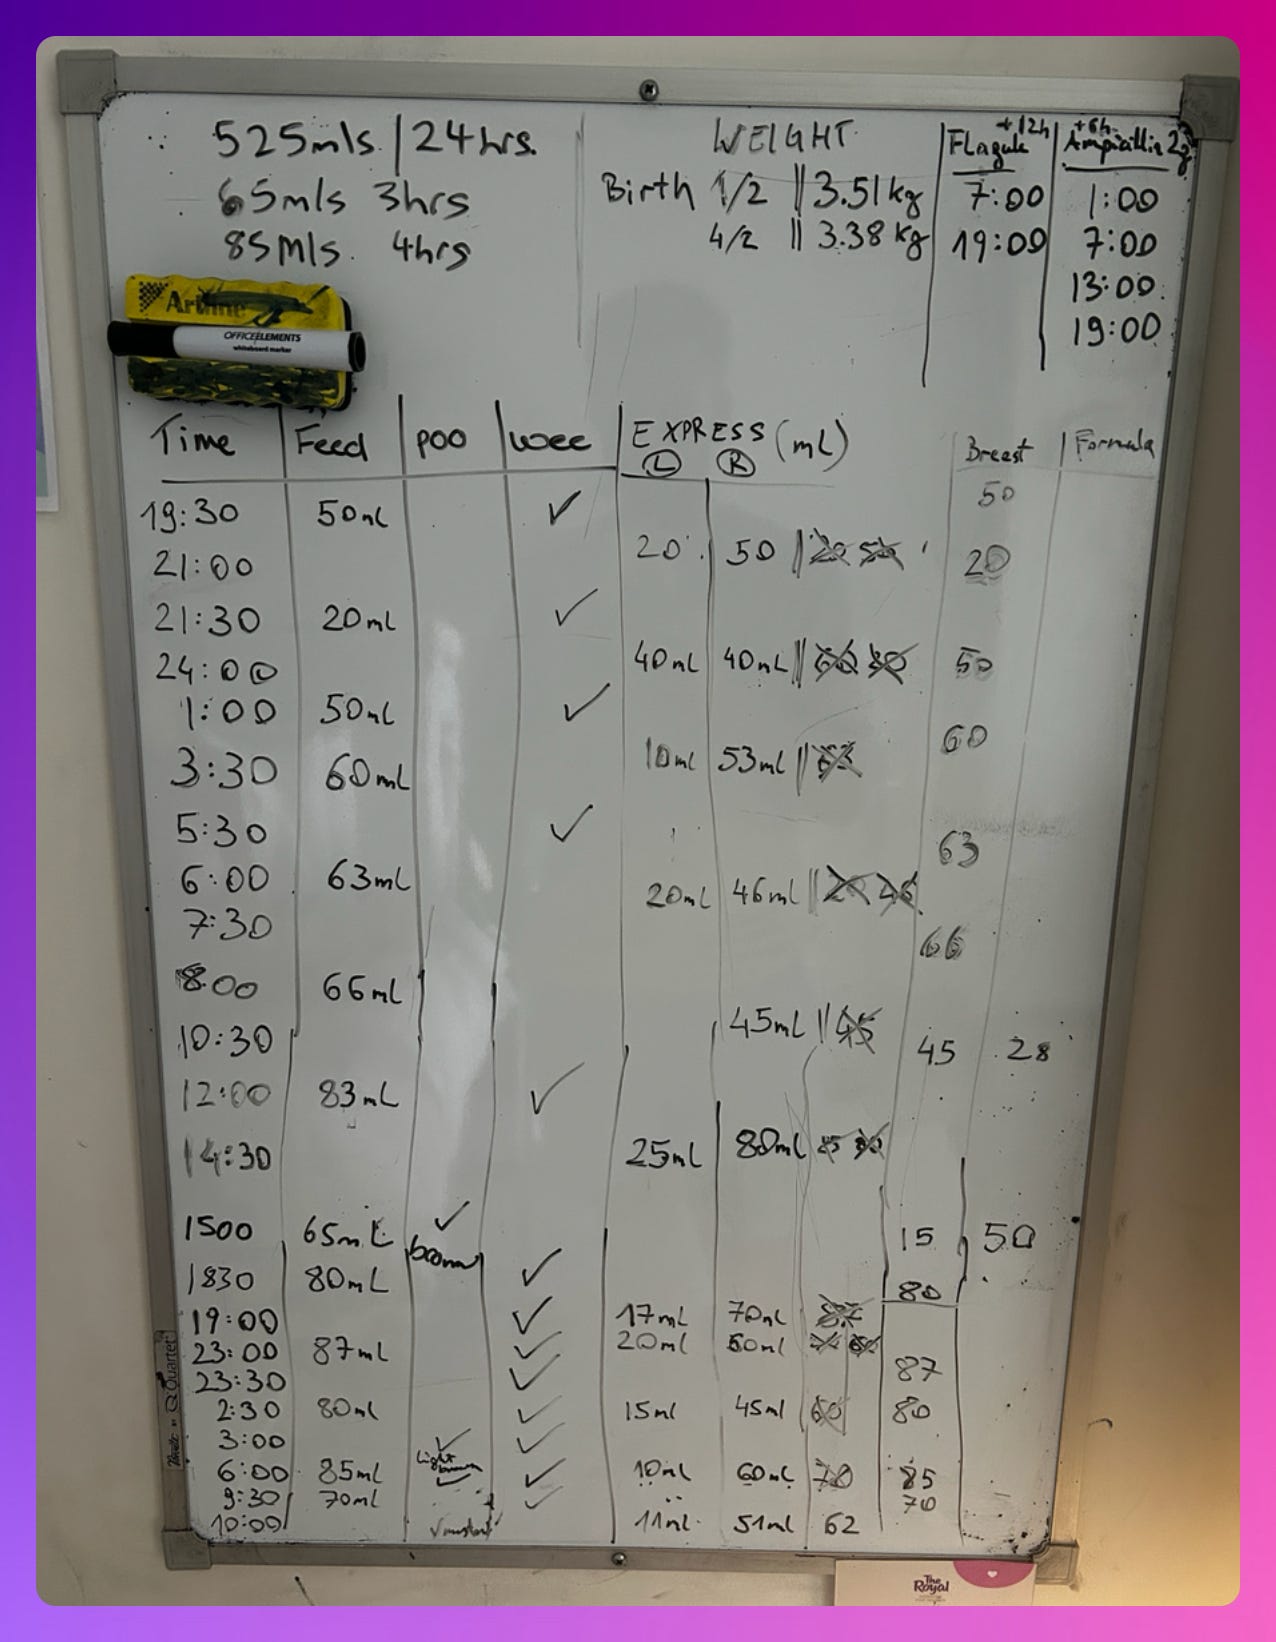 525mls | 24hrs.
65mls 3hrs
85mls. 4hrs
WEIGHT
Birth 1/2 || 3.51kg
4/2 || 3.38kg
+12h
7:00
19:00
+6h
Ampicillin 2g
1:00
7:00
13:00
19:00
Artline
OFFICEELEMENTS
whiteboard marker
Time Feed poo wee EXPRESS (mL) Breast Formula
L R
19:30 50mL ✓ 50
21:00 20 50 || 20
21:30 20mL ✓
24:00 40mL 40mL || 50
1:00 50mL ✓
3:30 60mL 10mL 53mL || 63 60
5:30 ✓
6:00 63mL 63
7:30 20mL 46mL || 20 46
8:00 66mL 66
10:30 45mL || 45 45 28
12:00 83mL ✓
14:30 25mL 80mL
1500 65mL ✓ brown 15 50
1830 80mL ✓ 80
19:00 ✓ 17mL 70mL
23:00 87mL ✓ 20mL 60mL 87
23:30 ✓
2:30 80mL ✓ 15ml 45ml 60 80
3:00 ✓ ✓
6:00 85ml light brown ✓ ✓ 10mL 60mL 70 85
9:30 70ml ✓ 70
10:00 ✓ 11ml 51ml 62
Quartet
The Royal